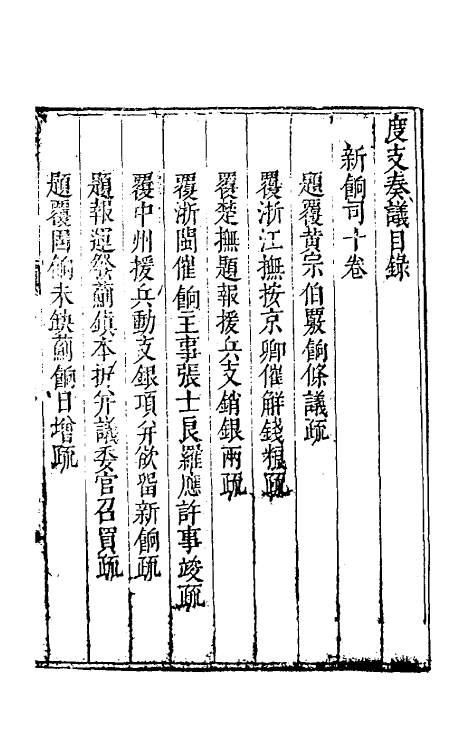 度支奏議目錄
新餉司十卷
題覆黄宗伯覈餉條議疏
覆浙江撫按京卿催解錢糧疏
覆楚撫題報援兵支銷銀兩疏
覆浙閩催餉主事張士良羅應許事竣疏
覆中州援兵動支銀項并欲留新餉疏
題報運發薊鎮本折并議委官召買疏
題覆関餉未缺薊餉日增疏